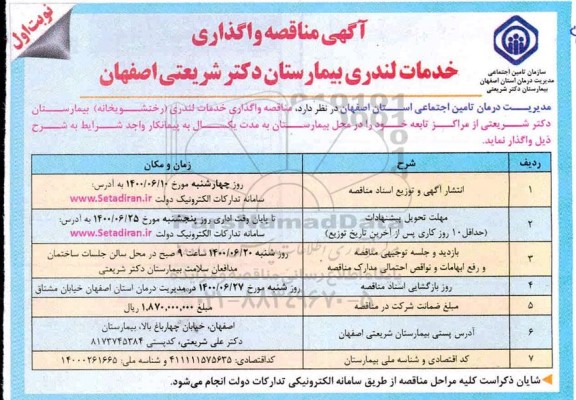 نوبت اول
آگهی مناقصه واگذاری
خدمات لندری بیمارستان دکتر شریعتی اصفهان
سازمان تامین اجتماعی
مدیریت درمان استان اصفهان
بیمارستان دکتر شریعتی
مدیریت درمان تامین اجتماعی استان اصفهان در نظر دارد، مناقصه واگذاری خدمات لندری (رختشویخانه) بیمارستان
دکتر شریعتی از مراکز تابعه خود را در محل بیمارستان به مدت یکسال به پیمانکار واجد شرایط به شرح
ذیل واگذار نماید.
ردیف شرح زمان و مکان
۱ انتشار آگهی و توزیع اسناد مناقصه روز چهارشنبه مورخ ۱۴۰۰/۰۶/۱۰ به آدرس:
سامانه تدارکات الکترونیک دولت www.Setadiran.ir
۲ مهلت تحویل پیشنهادات تا پایان وقت اداری روز پنجشنبه مورخ ۱۴۰۰/۰۶/۲۵ به آدرس:
(حداقل۱۰ روز کاری پس از آخرین تاریخ توزیع) سامانه تدارکات الکترونیک دولت www.Setadiran.ir
۳ بازدید و جلسه توجیهی مناقصه روز شنبه مورخ ۱۴۰۰/۰۶/۲۰ ساعت ۹ صبح در محل سالن جلسات ساختمان
و رفع ابهامات و نواقص احتمالی مدارک مناقصه مدافعان سلامت بیمارستان دکتر شریعتی
۴ روز بازگشایی اسناد مناقصه روز شنبه مورخ ۱۴۰۰/۰۶/۲۷ در مدیریت درمان استان اصفهان خیابان مشتاق
۵ مبلغ ضمانت شرکت در مناقصه مبلغ ۱,۸۷۰,۰۰۰,۰۰۰ ریال
۶ آدرس پستی بیمارستان شریعتی اصفهان اصفهان، خیابان چهارباغ بالا، بیمارستان
دکتر علی شریعتی، کدپستی ۸۱۷۳۷۴۵۳۸۴
۷ کد اقتصادی و شناسه ملی بیمارستان کداقتصادی: ۴۱۱۱۱۱۵۷۵۶۳۵ و شناسه ملی: ۱۴۰۰۰۲۶۱۶۶۵
شایان ذکراست کلیه مراحل مناقصه از طریق سامانه الکترونیکی تدارکات دولت انجام می‌شود.
۰۲۱-۸۸۳۴۹۶۷۰-۵